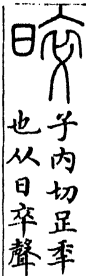 晬
子内切足秊
也从日卒聲